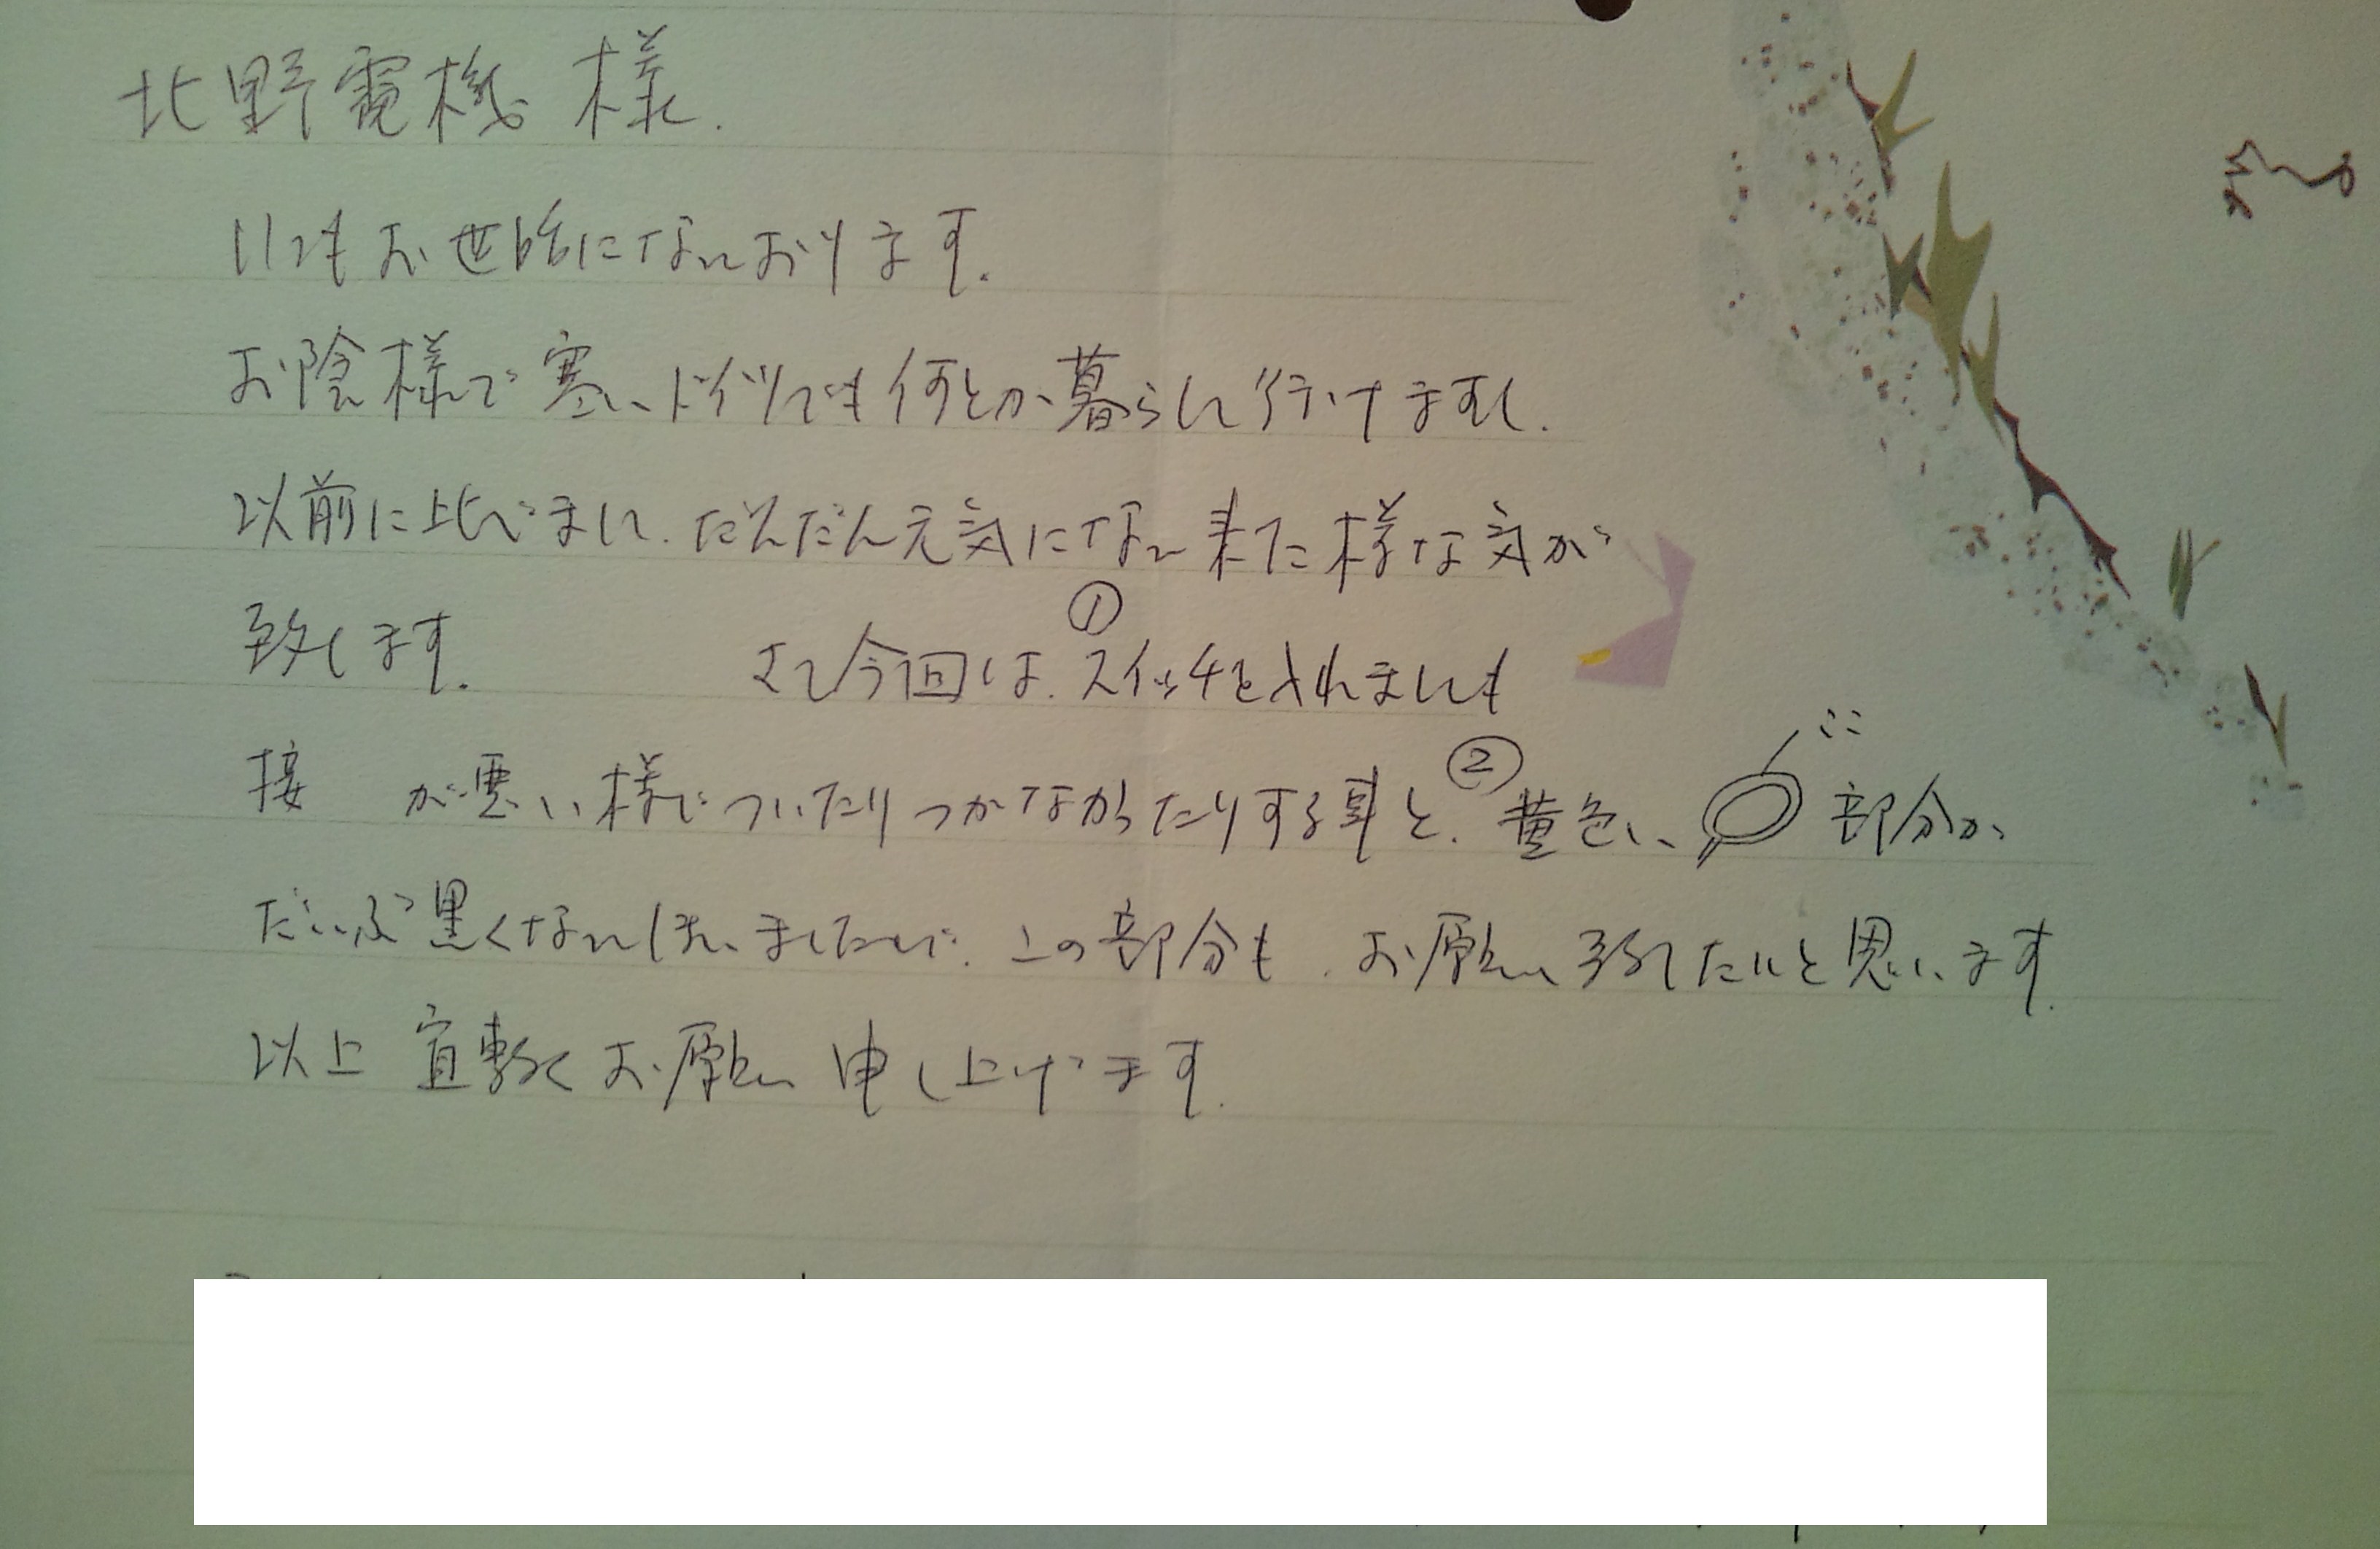 北野電機 様.
いつもお世話になっております.
お陰様で寒いドイツでも何とか暮らして行けますし.
以前に比べまして.だんだん元気になって来た様な気が
致します. さて今回は.①スイッチを入れましても
接 が悪い様でついたりつかなかったりする事と.②黄色い ここ 部分が
だいぶ黒くなってしまいましたので.この部分も.お願い致したいと思います.
以上 宜敷くお願い申し上げます.